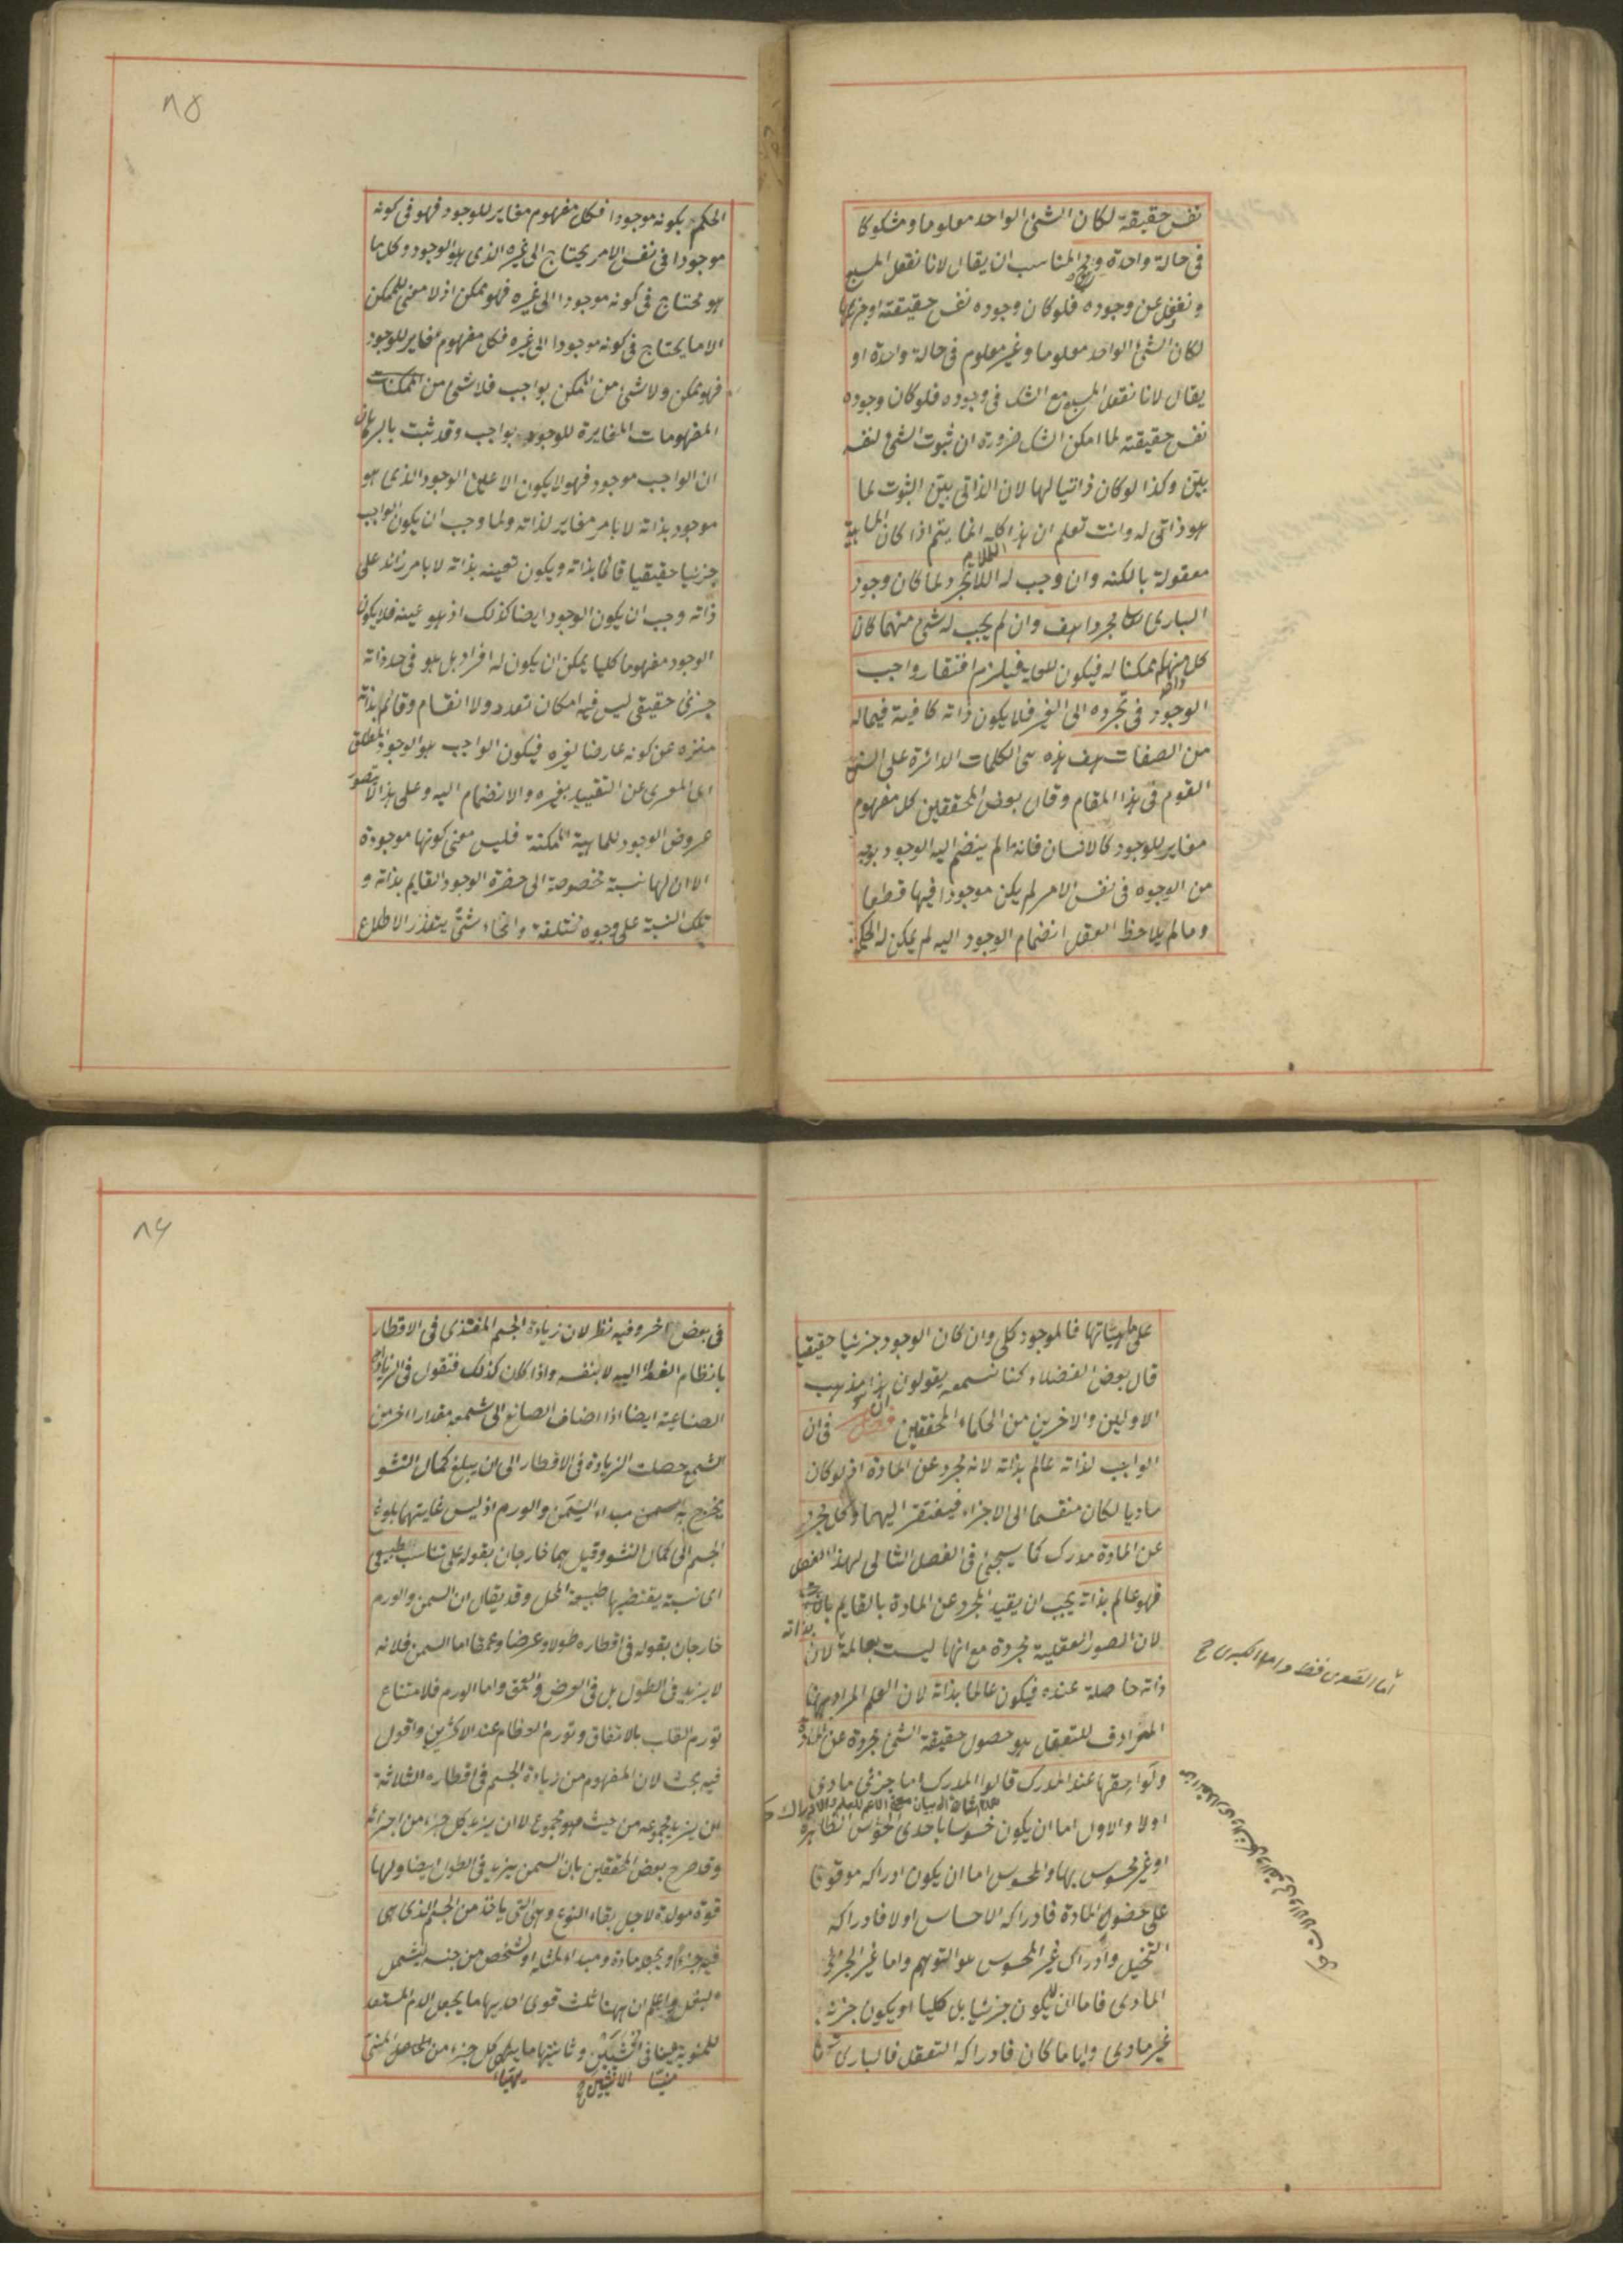 نفس حقيقة لكان الشئ الواحد معلوما ومشكوكا
فى حالة واحدة والمناسب ان يقال لانا نعقل المسبع
ونغفل عن وجوده فلو كان وجوده نفس حقيقته او جزئها
لكان الشئ الواحد معلوما وغير معلوم فى حالة واحدة او
يقال لانا نعقل المسبع مع الشك فى وجوده فلو كان وجوده
نفس حقيقته لما امكن الشك ضرورة ان ثبوت الشئ لنفسه
بيّن وكذا لو كان ذاتيا لها لان الذاتى بيّن الثبوت لما
هو ذاتى له وانت تعلم ان هذا كله انما يتم اذا كان الماهية
معقولة بالكنه وان وجب له اللاتجرد لما كان وجود
البارى تعا مجردا هف وان لم يجب له شئ منهما كان
كل منهما ممكنا له فيكون للعلة فيلزم افتقار واجب
الوجود فى تجرده الى الغير فلا يكون ذاته كافية فيما له
من الصفات هف هذه هى الكلمات الدائرة على السنة
القوم فى هذا المقام وقال بعض المحققين كل مفهوم
مغاير للوجود كالانسان فانه ما لم ينضم اليه الوجود بوجه
من الوجوه فى نفس الامر لم يكن موجودا فيها قطعا
وما لم يلاحظ العقل انضمام الوجود اليه لم يمكن له الحكم
٨٥
الحكم بكونه موجودا فكل مفهوم مغاير للوجود فهو فى كونه
موجودا فى نفس الامر يحتاج الى غيره الذى هو الوجود وكل ما
هو محتاج فى كونه موجودا الى غيره فهو ممكن اذ لا معنى للممكن
الا ما يحتاج فى كونه موجودا الى غيره فكل مفهوم مغاير للوجود
فهو ممكن ولا شئ من الممكن بواجب فلا شئ من الممكنات
المفهومات المغايرة للوجود بواجب وقد ثبت بالبرهان
ان الواجب موجود فهو لا يكون الا عين الوجود الذى هو
موجود بذاته لا بامر مغاير لذاته ولما وجب ان يكون الواجب
جزئيا حقيقيا قائما بذاته ويكون تعينه بذاته لا بامر زائد على
ذاته وجب ان يكون الوجود ايضا كذلك اذ هو عينه فلا يكون
الوجود مفهوما كليا يمكن ان يكون له افراد بل هو فى حد ذاته
جزئى حقيقى ليس فيه امكان تعدد ولا انقسام وقائم بذاته
منزه عن كونه عارضا لغيره فيكون الواجب هو الوجود المطلق
اى المعرى عن التقييد بغيره والانضمام اليه وعلى هذا لا يتصور
عروض الوجود للماهية الممكنة فليس معنى كونها موجودة
الا ان لها نسبة مخصوصة الى حضرة الوجود القايم بذاته و
تلك النسبة على وجوه مختلفة وانحاء شتى يتعذر الاطلاع
على ماهياتها فالموجود كلى وان كان الوجود جزئيا حقيقيا
قال بعض الفضلاء كنا نسمعه يقولون ان هذا مذهب
الاولين والاخرين من الحكماء المحققين فصل فى ان
الواجب لذاته عالم بذاته لانه مجرد عن المادة اذ لو كان
ماديا لكان منقسما الى الاجزاء فيفتقر اليهما وكل مجرد
عن المادة مدرك كما سيجئ فى الفصل التالى لهذا الفصل
فهو عالم بذاته يجب ان يقيد المجرد عن المادة بالقايم بذاته
لان الصور العقلية مجردة مع انها ليست بعالمة لان
ذاته حاصلة عنده فيكون عالما بذاته لان العلم المراد بهنا
المرادف للتعقل هو حصول حقيقة الشئ مجردة عن المادة
ولواحقها عند المدرك قالوا المدرك اما جزئى مادى
اولا والاول اما ان يكون محسوسا باحدى الحواس الظاهرة
او غير محسوس بها والمحسوس اما ان يكون ادراكه موقوفا
على حضور المادة فادراكه الاحساس اولا فادراكه
التخيل وادراك غير المحسوس هو التوهم واما غير الجزئى
المادى فاما ان لا يكون جزئيا بل كليا او يكون جزئيا
غير مادى وايا ما كان فادراكه التعقل فالبارى تعا
اما الصغرى فقط واما الكبرى
٨٦
فى بعض اخر وفيه نظر لان زيادة الجسم المغتذى فى الاقطار
بانظام الغذاء اليه لا بنفسه واذا كان كذلك فنقول فى الزيادة
الصناعية ايضا اذا اضاف الصانع الى شمعه مقدارا اخر من
الشمع حصلت الزيادة فى الاقطار الى ان يبلغ كمال النشو
يخرج به مبداء السمن والورم اذ ليس غايتهما بلوغ
الجسم الى كمال النشو وقيل هما خارجان بقوله على تناسب طبيعى
اى نسبة يقتضيها طبيعة المحل وقد يقال ان السمن والورم
خارجان بقوله فى اقطاره طولا وعرضا وعمقا اما السمن فلانه
لا يزيد فى الطول بل فى العرض والعمق واما الورم فلامتناع
تورم القلب بالاتفاق وتورم العظام عند الاكثرين واقول
فيه بحث لان المفهوم من زيادة الجسم فى اقطاره الثلاثة
ان يزيد مجموعه من حيث هو مجموع لا ان يزيد كل جزء من اجزائه
وقد صرح بعض المحققين بان السمن يزيد فى الطول ايضا ولها
قوة مولدة لاجل بقاء النوع وهى التى ياخذ من الجسم الذى هى
فيه جزءا ويجعله مادة ومبداء لمثله او لشخص من جنسه يشمل
البغل واعلم ان ههنا ثلث قوى احديها ما يجعل الدم المستعد
للمنوية منيا فى الانثيين وثانيتها ما يهيئ كل جزء من المنى